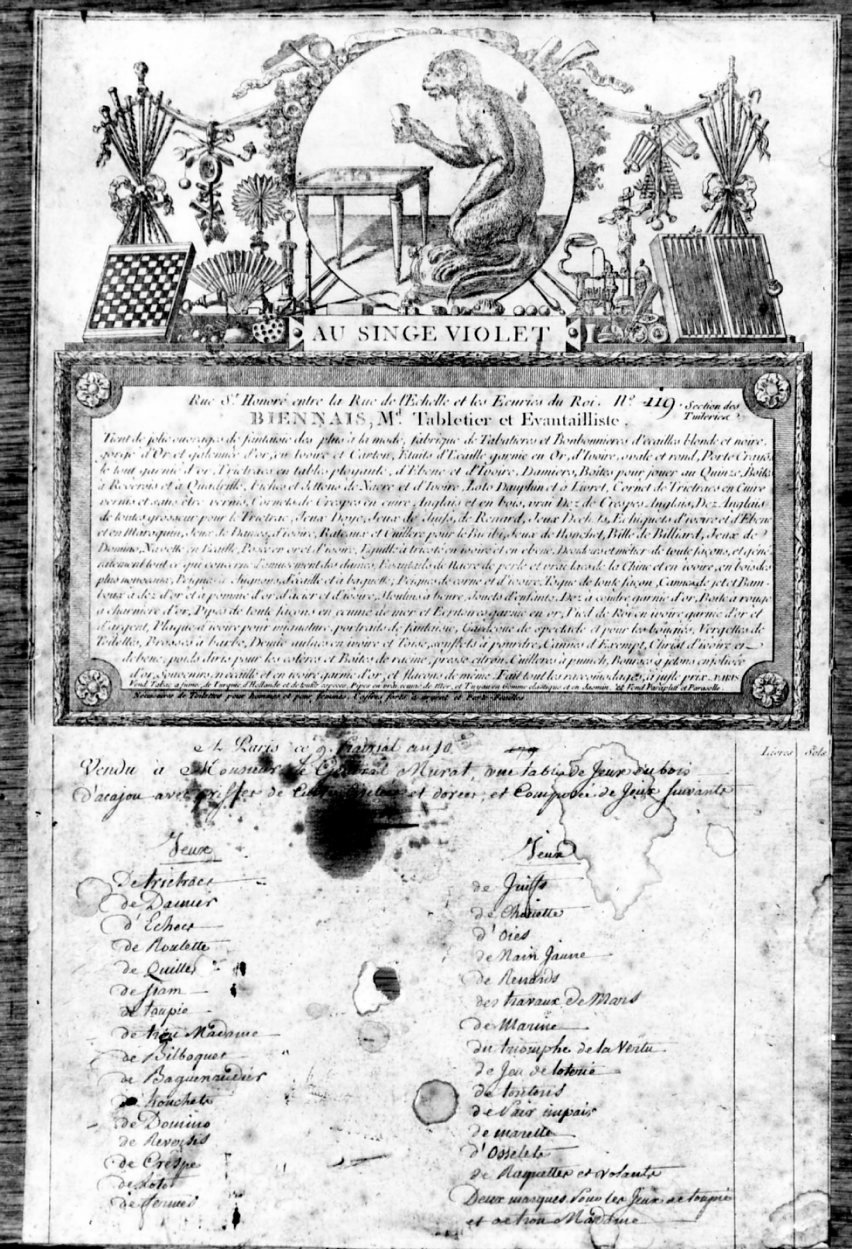 AU SINGE VIOLET
Rue St. Honoré entre la Rue de l'Echelle et les Ecuries du Roi. No. 119. Section des Tuileries
BIENNAIS, Md. Tabletier et Evantailliste.
Tient de jolis ouvrages de fantaisie des plus à la mode, fabrique de Tabatieres et Bonbonnieres d'écailles blonde et noire,
gorge d'Or et galonnée d'or, en Ivoire et Carton, Etuits d'Ecaille garnie en Or, d'Ivoire, ovale et rond, Porte Craion
le tout garnie d'or. Trictracs en tables ployante, d'Ebene et d'Ivoire, Damiers, Boites pour jouer au Quinze, Boite
à Reversis et à Quadrille, Fiches et Jettons de Nacre et d'Ivoire, Loto Dauphin et à Livret, Cornet de Trictracs en Cuire
vernis et sans être vernis, Cornets de Crespes en cuire Anglais et en bois, vrai Dez de Crespes Anglais, Dez Anglais
de toutes grosseur pour le Trictrac, Jeux d'oye, Jeux de Juifs, de Renard, Jeux d'Echets, Echiquets d'ivoire et d'Ebene
et en Maroquin, Jeux de Dames d'ivoire, Rateaux et Cuillere pour le Biribi, Jeux de Honchet, Bille de Billard, Jeux de
Domino, Navette en Ecaille, en or et d'ivoire, Eguille à tricoté en ivoire et en ebene, et métier de toute façons, et géné
ralement tout ce qui concerne l'amusement des dames, Evantails de Nacre de perle et vrai lacq de la Chine et en ivoire, en bois des
plus nouveaux, Peignes à Chignons d'écaille et à baguette, Peignes de corne et d'ivoire, de toute façon, Cannes de jet et Bam-
boux à dez d'or et à pomme d'or, d'acier et d'ivoire, Moulins à beure, Jouets d'enfants, Dez à coudre garnie d'or, Boite à rouge
à charniere d'or, Pipes de toute façons en ecume de mer et Ecritoires garnie en or, Pied de Roi en ivoire garnie d'or et
d'argent, Plaque d'ivoire pour mignature, portraits de fantaisie, de spectacle et pour les bougies, Vergettes de
Toilettes, Brosses à barbe, Demie aulnes en ivoire et Toise, soufflets à poudrer, Cannes d'Exempt, Christ d'ivoire et
debene, pour les et Boites de racine, presse citron, Cuilleres à punch, Bourses à jetons enjolivée
d'or, Souvenirs en ecaille et en ivoire garnie d'or, et flacons de même. Fait tout les racomodages à juste prix. PARIS.
Vend Tabac à fumer, de Turquie d'Hollande et de toute especes, Pipes en vrai ecume de mer, et Tuyau en Gomme elastique et en Jasmin, et Vend Parapluï et Parasolle
Nécessaires de Toilettes pour hommes et pour femmes, Coffres forts à argent et Porte-Feuilles
A Paris ce 9. Prairial an 10
Livres Sols
Vendu à Monsieur le Général Murat, une table de Jeux du bois
D'acajou avec et dorées, et Composée de Jeux suivants
Jeux
De trictrac
de Damier
d'Echecs
de Roulette
de Quilles
de Siam
de toupie
de trou Madame
de Bilboquet
de Baguenaudier
de honchets
de Domino
de Reversis
de Crespe
de Loto
de fermes
Jeux
de Juiffs
de Chouette
d'Oies
de Nain Jaune
de Renards
des travaux de Mars
de Marine
du triomphe de la Vertu
de Jeu de loterie
de tontons
de Pair impair
de marelle
d'Osselets
de Raquettes et volants
Deux marques pour les Jeux de toupie
et de trou Madame